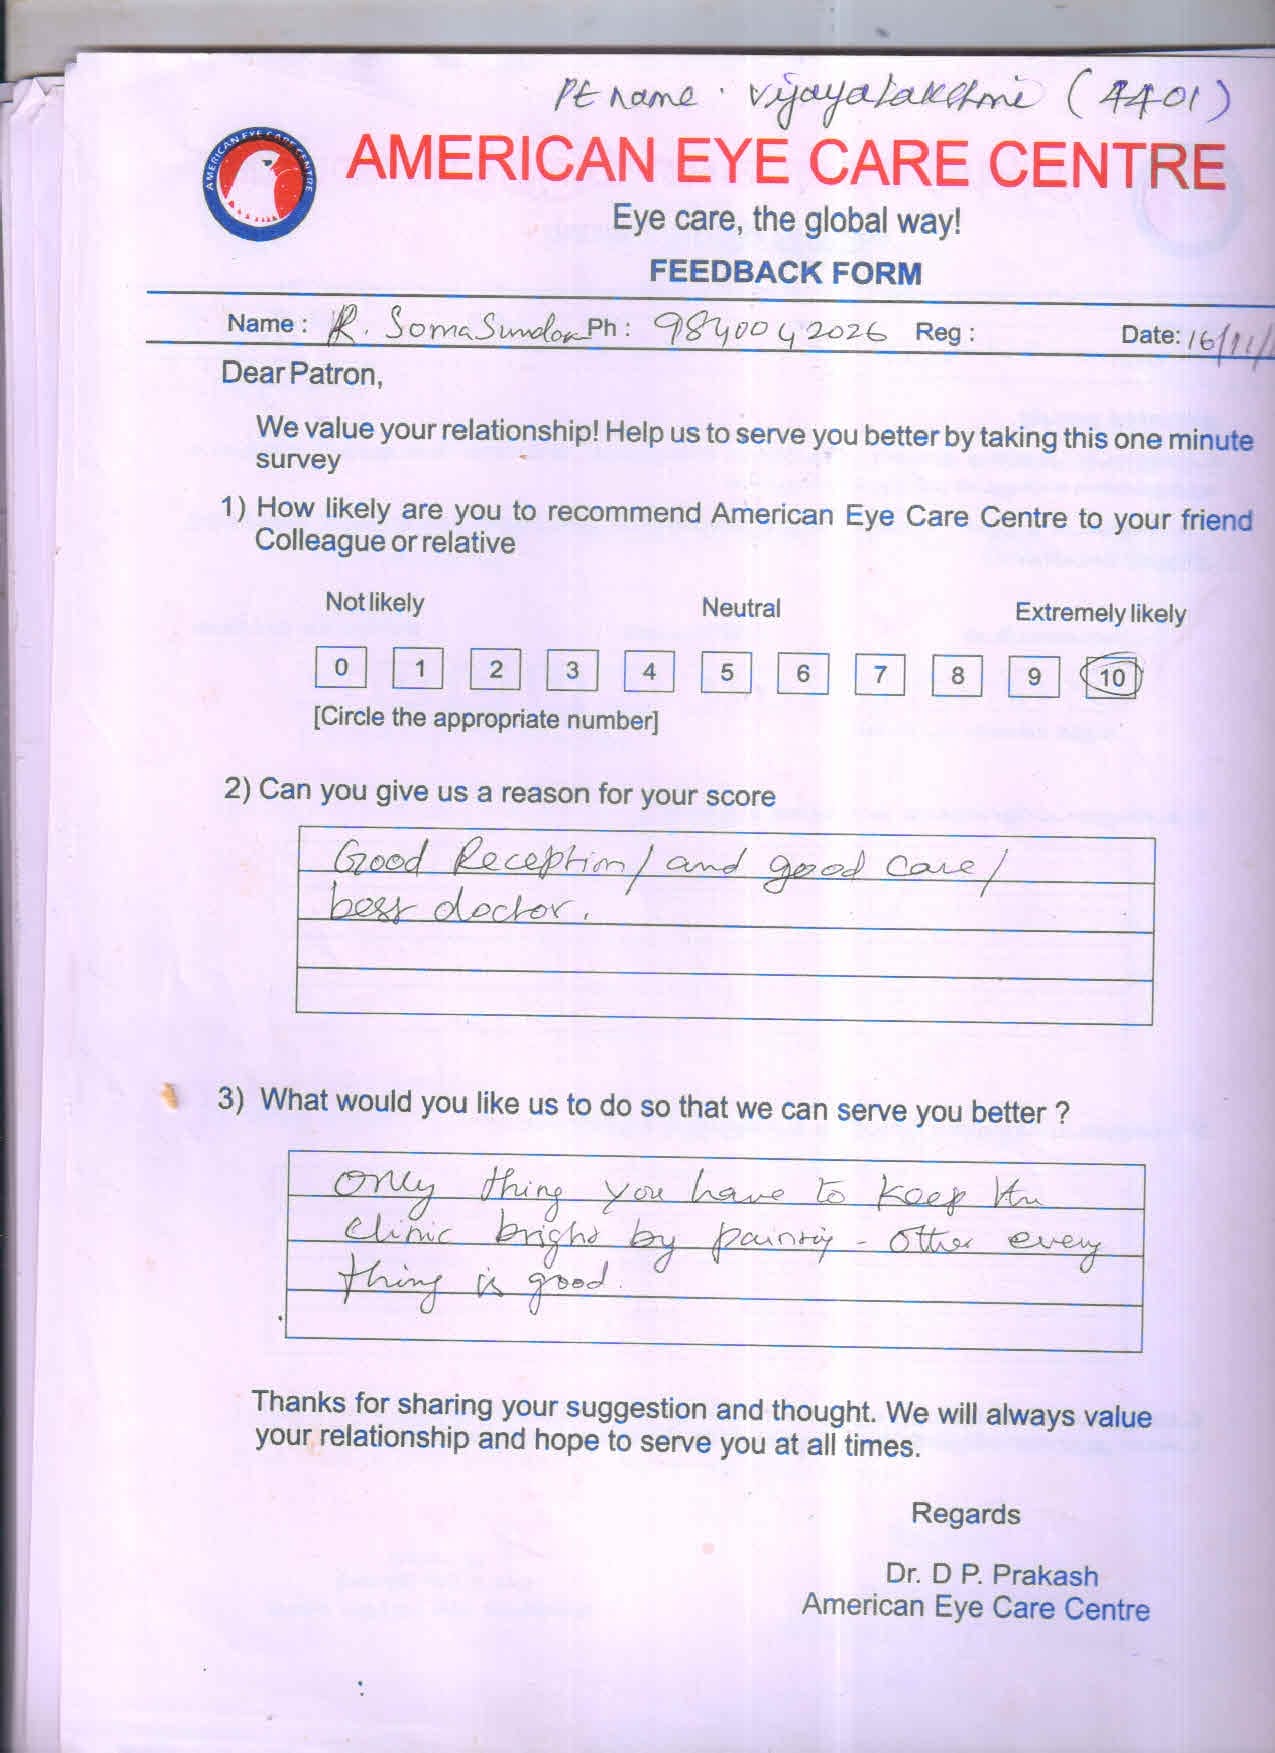 Pt name : Vijayalakshmi (4401)
AMERICAN EYE CARE CENTRE
AMERICAN EYE CARE CENTRE
Eye care, the global way!
FEEDBACK FORM
Name : R. SomaSundar Ph : 9840042026 Reg : Date: 16/11/
Dear Patron,
We value your relationship! Help us to serve you better by taking this one minute
survey
1) How likely are you to recommend American Eye Care Centre to your friend
Colleague or relative
Not likely Neutral Extremely likely
0 1 2 3 4 5 6 7 8 9 10
[Circle the appropriate number]
2) Can you give us a reason for your score
Good Reception/ and good care/
best doctor.
3) What would you like us to do so that we can serve you better ?
Only thing you have to keep the
clinic bright by painting - other every
thing is good.
Thanks for sharing your suggestion and thought. We will always value
your relationship and hope to serve you at all times.
Regards
Dr. D P. Prakash
American Eye Care Centre